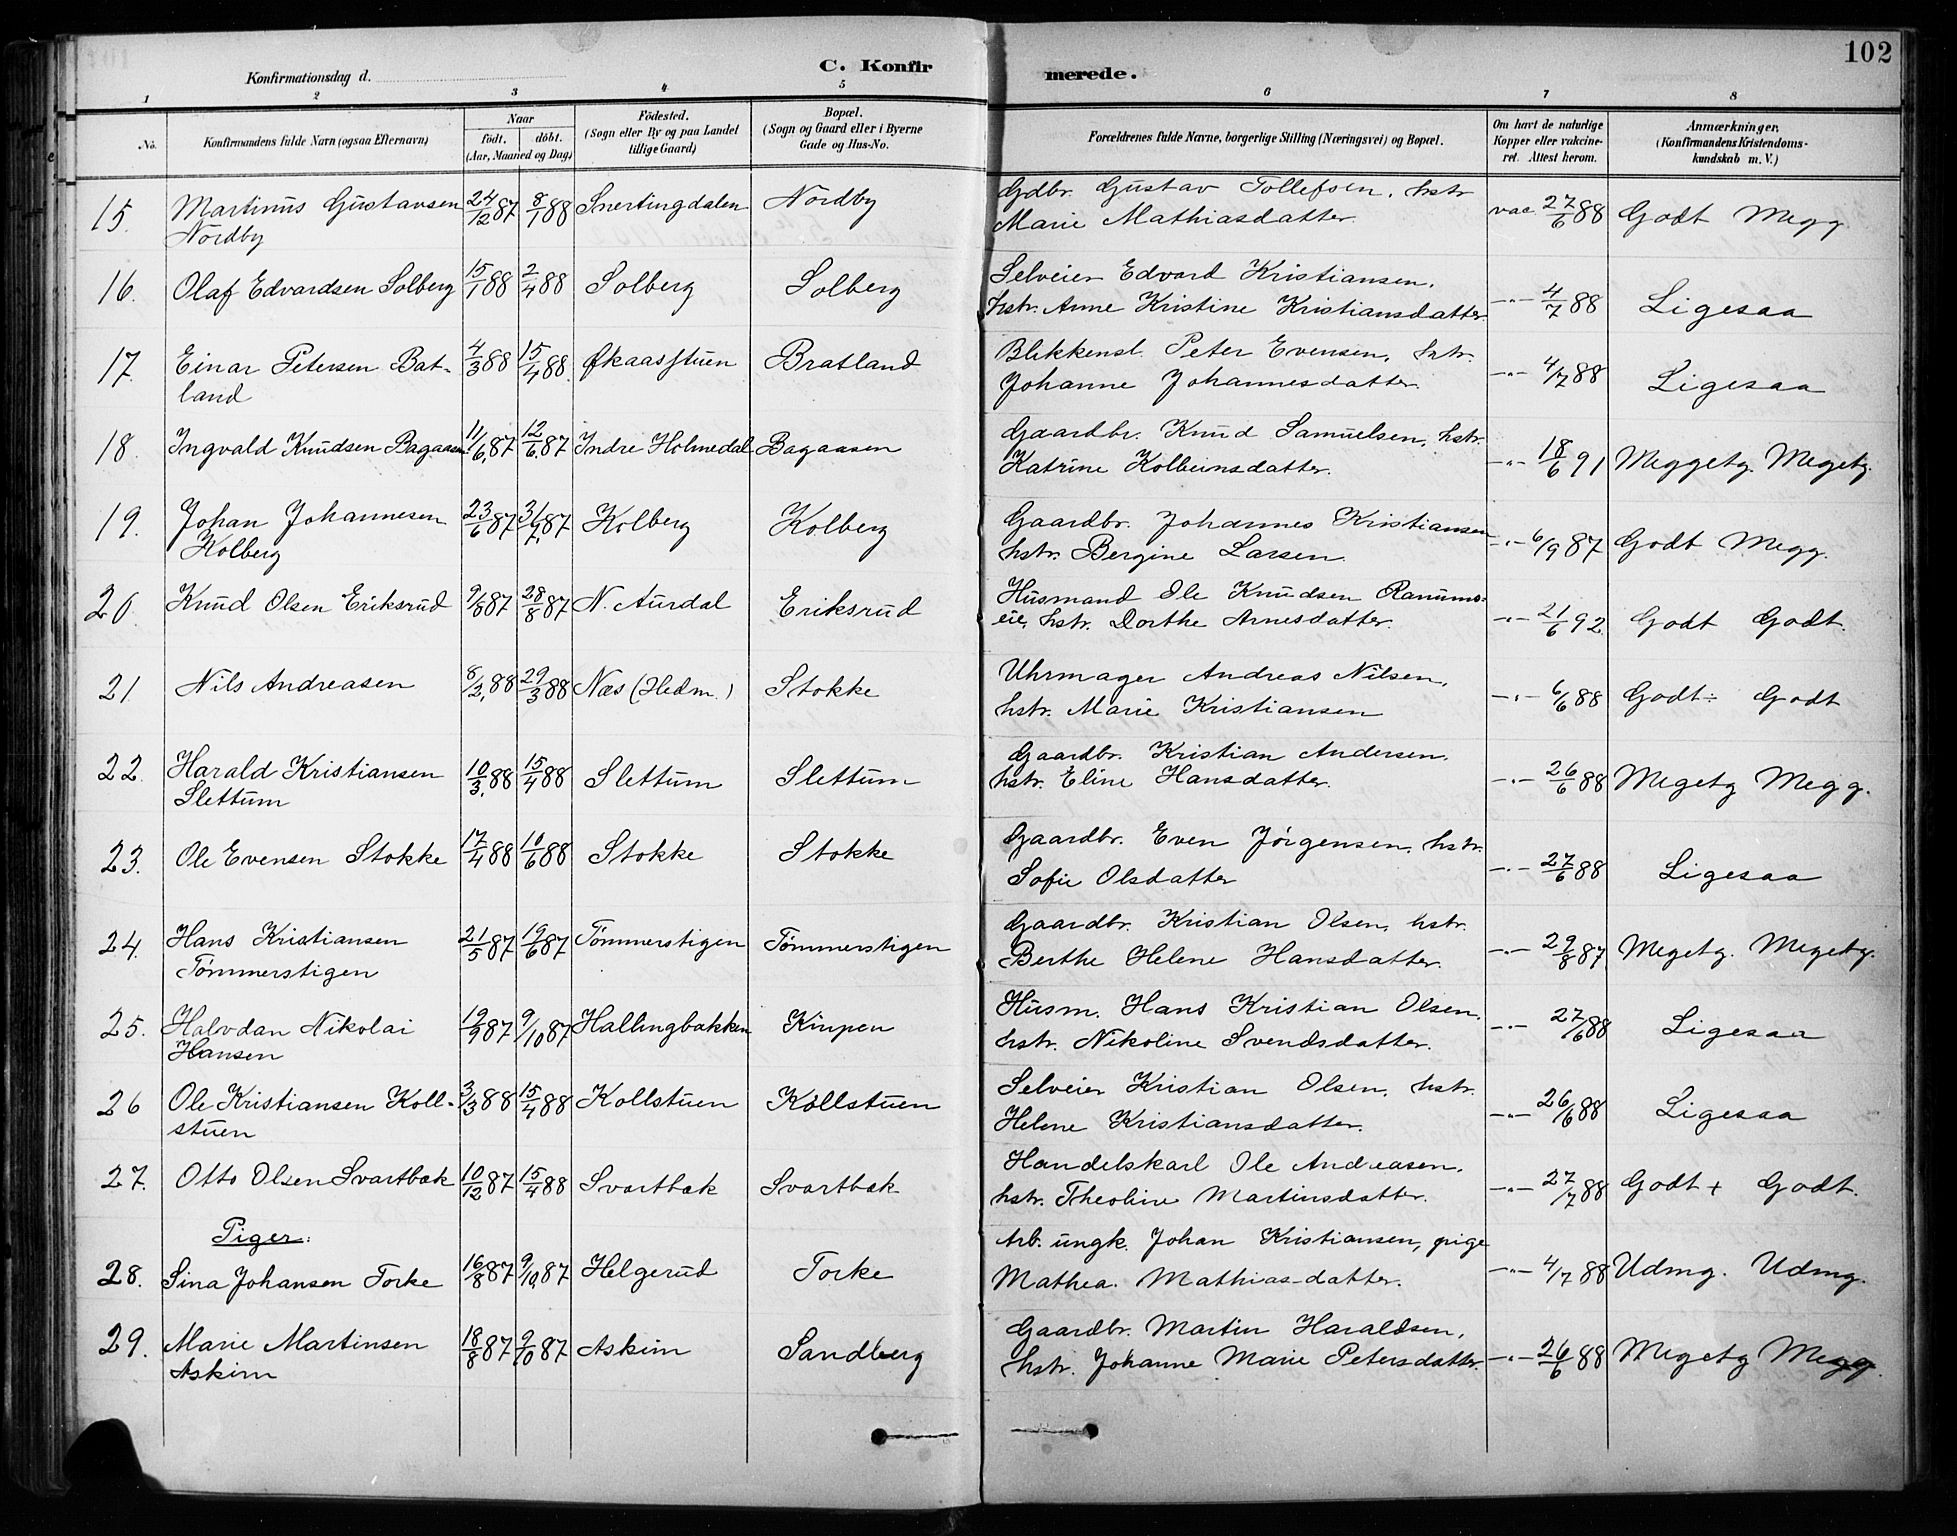 102
Konfirmationsdag d.
C. Konfirmerede.
1 2 3 4 5 6 7 8
No. Konfirmandens fulde Navn (ogsaa Efternavn) Naar født, døbt. (Aar, Maaned og Dag) Fødested. (Sogn eller By og paa Landet tillige Gaard) Bopæl. (Sogn og Gaard eller i Byerne Gade og Hus-No. Forældrenes fulde Navne, borgerlige Stilling (Næringsvei) og Bopæl. Om havt de naturlige Kopper eller vakcineret. Attest herom. Anmærkninger. (Konfirmandens Kristendomskundskab m. V.)
15. Martinus Gustavsen 24/12 87 8/1 88 Snertingdalen Nordby Gdbr. Gustav Tollefsen, hstr vac. 27/6 88 Godt Megg
Nordby Marie Mathiasdatter.
16. Olaf Edvardsen Solberg 15/1 88 2/4 88 Solberg Solberg Selveier Edvard Kristiansen,
hstr. Anne Kristine Kristiansdatter -"- 4/7 88 Ligesaa
17. Einar Petersen Bat- 4/3 88 15/4 88 Bratland Blikkensl. Peter Evensen, hstr.
land Johanne Johannesdatter. -"- 4/7 88 Ligesaa
18. Ingvald Knudsen Bagaasen 11/6 87 12/6 87 Indre Holmedal Bagaasen Gaardbr. Knud Samuelsen, hstr.
Katrine Kolbeinsdatter. -"- 18/6 91 Meggetg. Megetg.
19. Johan Johannesen 23/6 87 31/7 87 Kolberg Kolberg Gaardbr. Johannes Kristiansen
Kolberg hstr. Bergine Larsen. -"- 6/9 87 Godt Megg.
20. Knud Olsen Eriksrud 9/8 87 28/8 87 N. Aurdal Eriksrud Husmand Ole Knudsen Ranums-
eie, hstr. Dorthe Arnesdatter. -"- 21/6 92 Godt Godt.
21. Nils Andreasen 8/2 88 29/3 88 Næs (Hedm.) Stokke Uhrmager Andreas Nilsen,
hstr. Marie Kristiansen -"- 6/6 88 Godt÷ Godt
22. Harald Kristiansen 10/3 88 15/4 88 Slettum Slettum Gaardbr. Kristian Andersen.
Slettum hstr. Eline Hansdatter. -"- 26/6 88 Megetg Megg.
23. Ole Evensen Stokke 17/4 88 10/6 88 Stokke Stokke Gaardbr. Even Jørgensen, hstr.
Sofie Olsdatter -"- 27/6 88 Ligesaa
24. Hans Kristiansen 21/5 87 19/6 87 Tømmerstigen Tømmerstigen Gaardbr. Kristian Olsen, hstr.
Tømmerstigen Berthe Helene Hansdatter. -"- 29/8 87 Megetg. Megetg.
25. Halvdan Nikolai 19/9 87 9/10 87 Hallingbakken Kinpen Husm. Hans Kristian Olsen,
Hansen hstr. Nikoline Svendsdatter. -"- 27/6 88 Ligesaa
26 Ole Kristiansen Koll- 3/3 88 15/4 88 Kollstuen Kollstuen Selveier Kristian Olsen, hstr.
stuen Helene Kristiansdatter. -"- 26/6 88 Ligesaa
27. Otto Olsen Svartbak 10/12 87 15/4 88 Svartbak Svartbak Handelskarl Ole Andreasen,
hstr. Theoline Martinsdatter. -"- 27/7 88 Godt+ Godt.
Piger:
28. Sina Johansen Torke 16/8 87 9/10 87 Helgerud Torke Arb. ungk. Johan Kristiansen, pige
Mathea Mathiasdatter. -"- 4/7 88 Udmg. Udmg.
29. Marie Martinsen 18/8 87 9/10 87 Askim Sandberg Gaardbr. Martin Haraldsen,
Askim hstr. Johanne Marie Petersdatter. -"- 26/6 88 Megetg Megg.